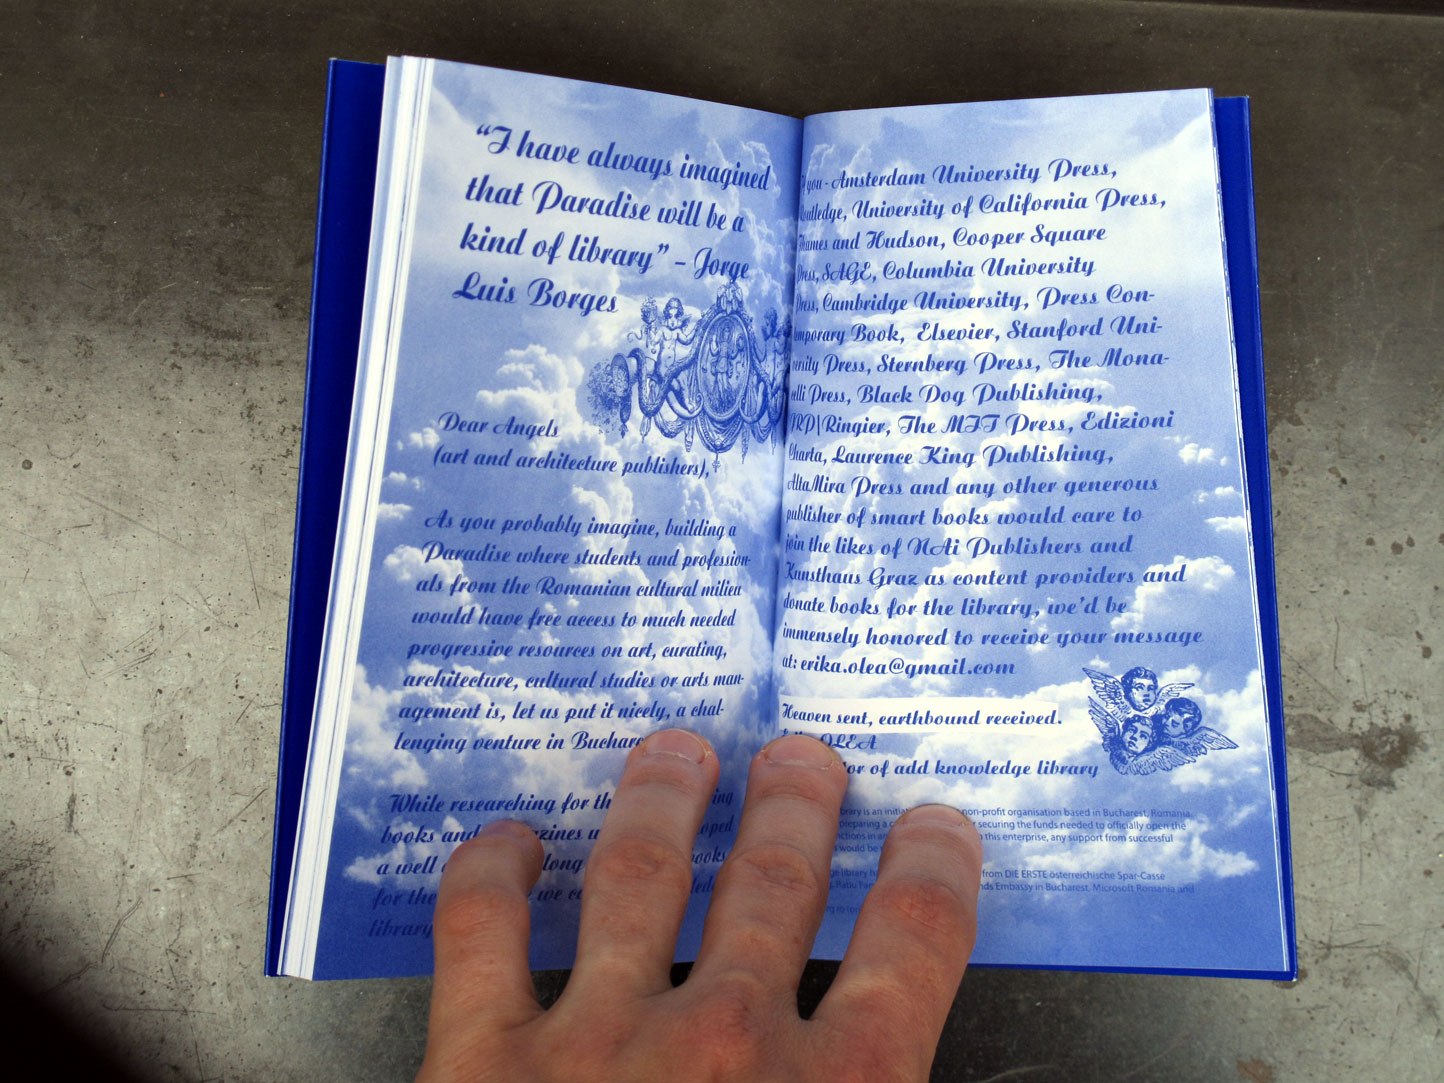 “I have always imagined
that Paradise will be a
kind of library” – Jorge
Luis Borges
Dear Angels
(art and architecture publishers),
As you probably imagine, building a
Paradise where students and profession-
als from the Romanian cultural milieu
would have free access to much needed
progressive resources on art, curating,
architecture, cultural studies or arts man-
agement is, let us put it nicely, a chal-
lenging venture in
While researching for
books and
a well
for the we
library
you - Amsterdam University Press,
University of California Press,
and Hudson, Cooper Square
Press, SAGE, Columbia University
Press, Cambridge University, Press Con-
Book, Elsevier, Stanford Uni-
Press, Sternberg Press, The Mona-
Press, Black Dog Publishing,
JRP|Ringier, The MIT Press, Edizioni
Charta, Laurence King Publishing,
AltaMira Press and any other generous
publisher of smart books would care to
join the likes of NAi Publishers and
Kunsthaus Graz as content providers and
donate books for the library, we'd be
immensely honored to receive your message
at: erika.olea@gmail.com
Heaven sent, earthbound received.
OLEA
of add knowledge library
is an non-profit organisation based in Bucharest, Romania.
preparing a securing the funds needed to officially open the
in this enterprise, any support from successful
would be
library from DIE ERSTE österreichische Spar-Casse
Embassy in Bucharest, Microsoft Romania and